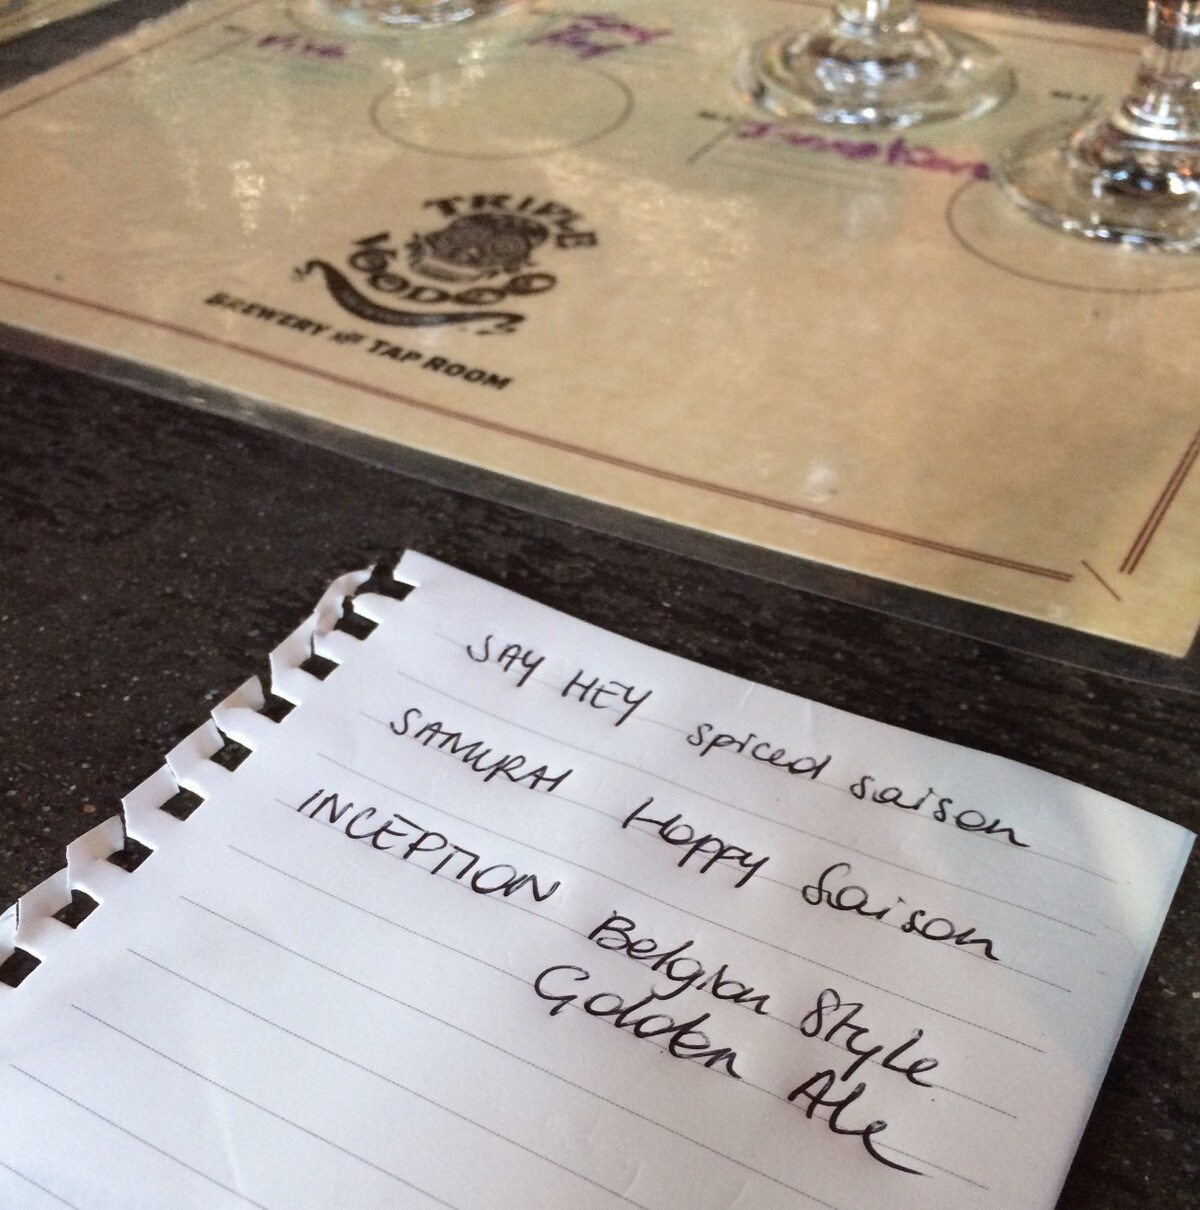 TRIPLE
VOODOO
BREWERY AND TAP ROOM
Inception
SAY HEY spiced saison
SAMURAI Hoppy Saison
INCEPTION Belgian Style
Golden Ale